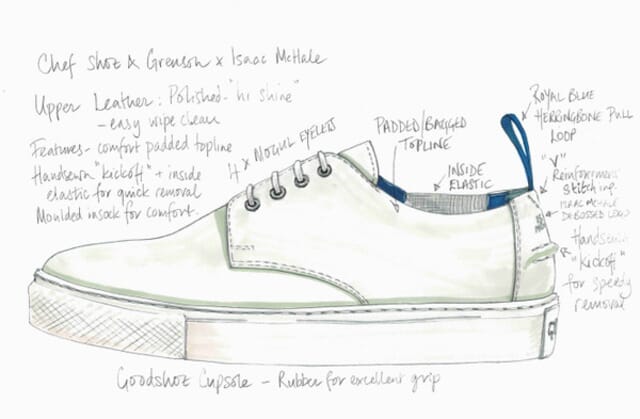 Chef Shoz & Grenson x Isaac McHale
Upper Leather: Polished - "hi shine"
- easy wipe clean
Features - comfort padded topline
Handsewn "kickoff" + inside
elastic for quick removal
Moulded insock for comfort.
4 x MOGUL EYELETS
PADDED/BAGGED
TOPLINE
INSIDE
ELASTIC
ROYAL BLUE
HERRINGBONE PULL
LOOP
"V"
Reinforcement
stitching
ISAAC MCHALE
DEBOSSED LOGO
Handsewn
"kickoff"
for speedy
removal
Goodshoz Cupsole - Rubber for excellent grip